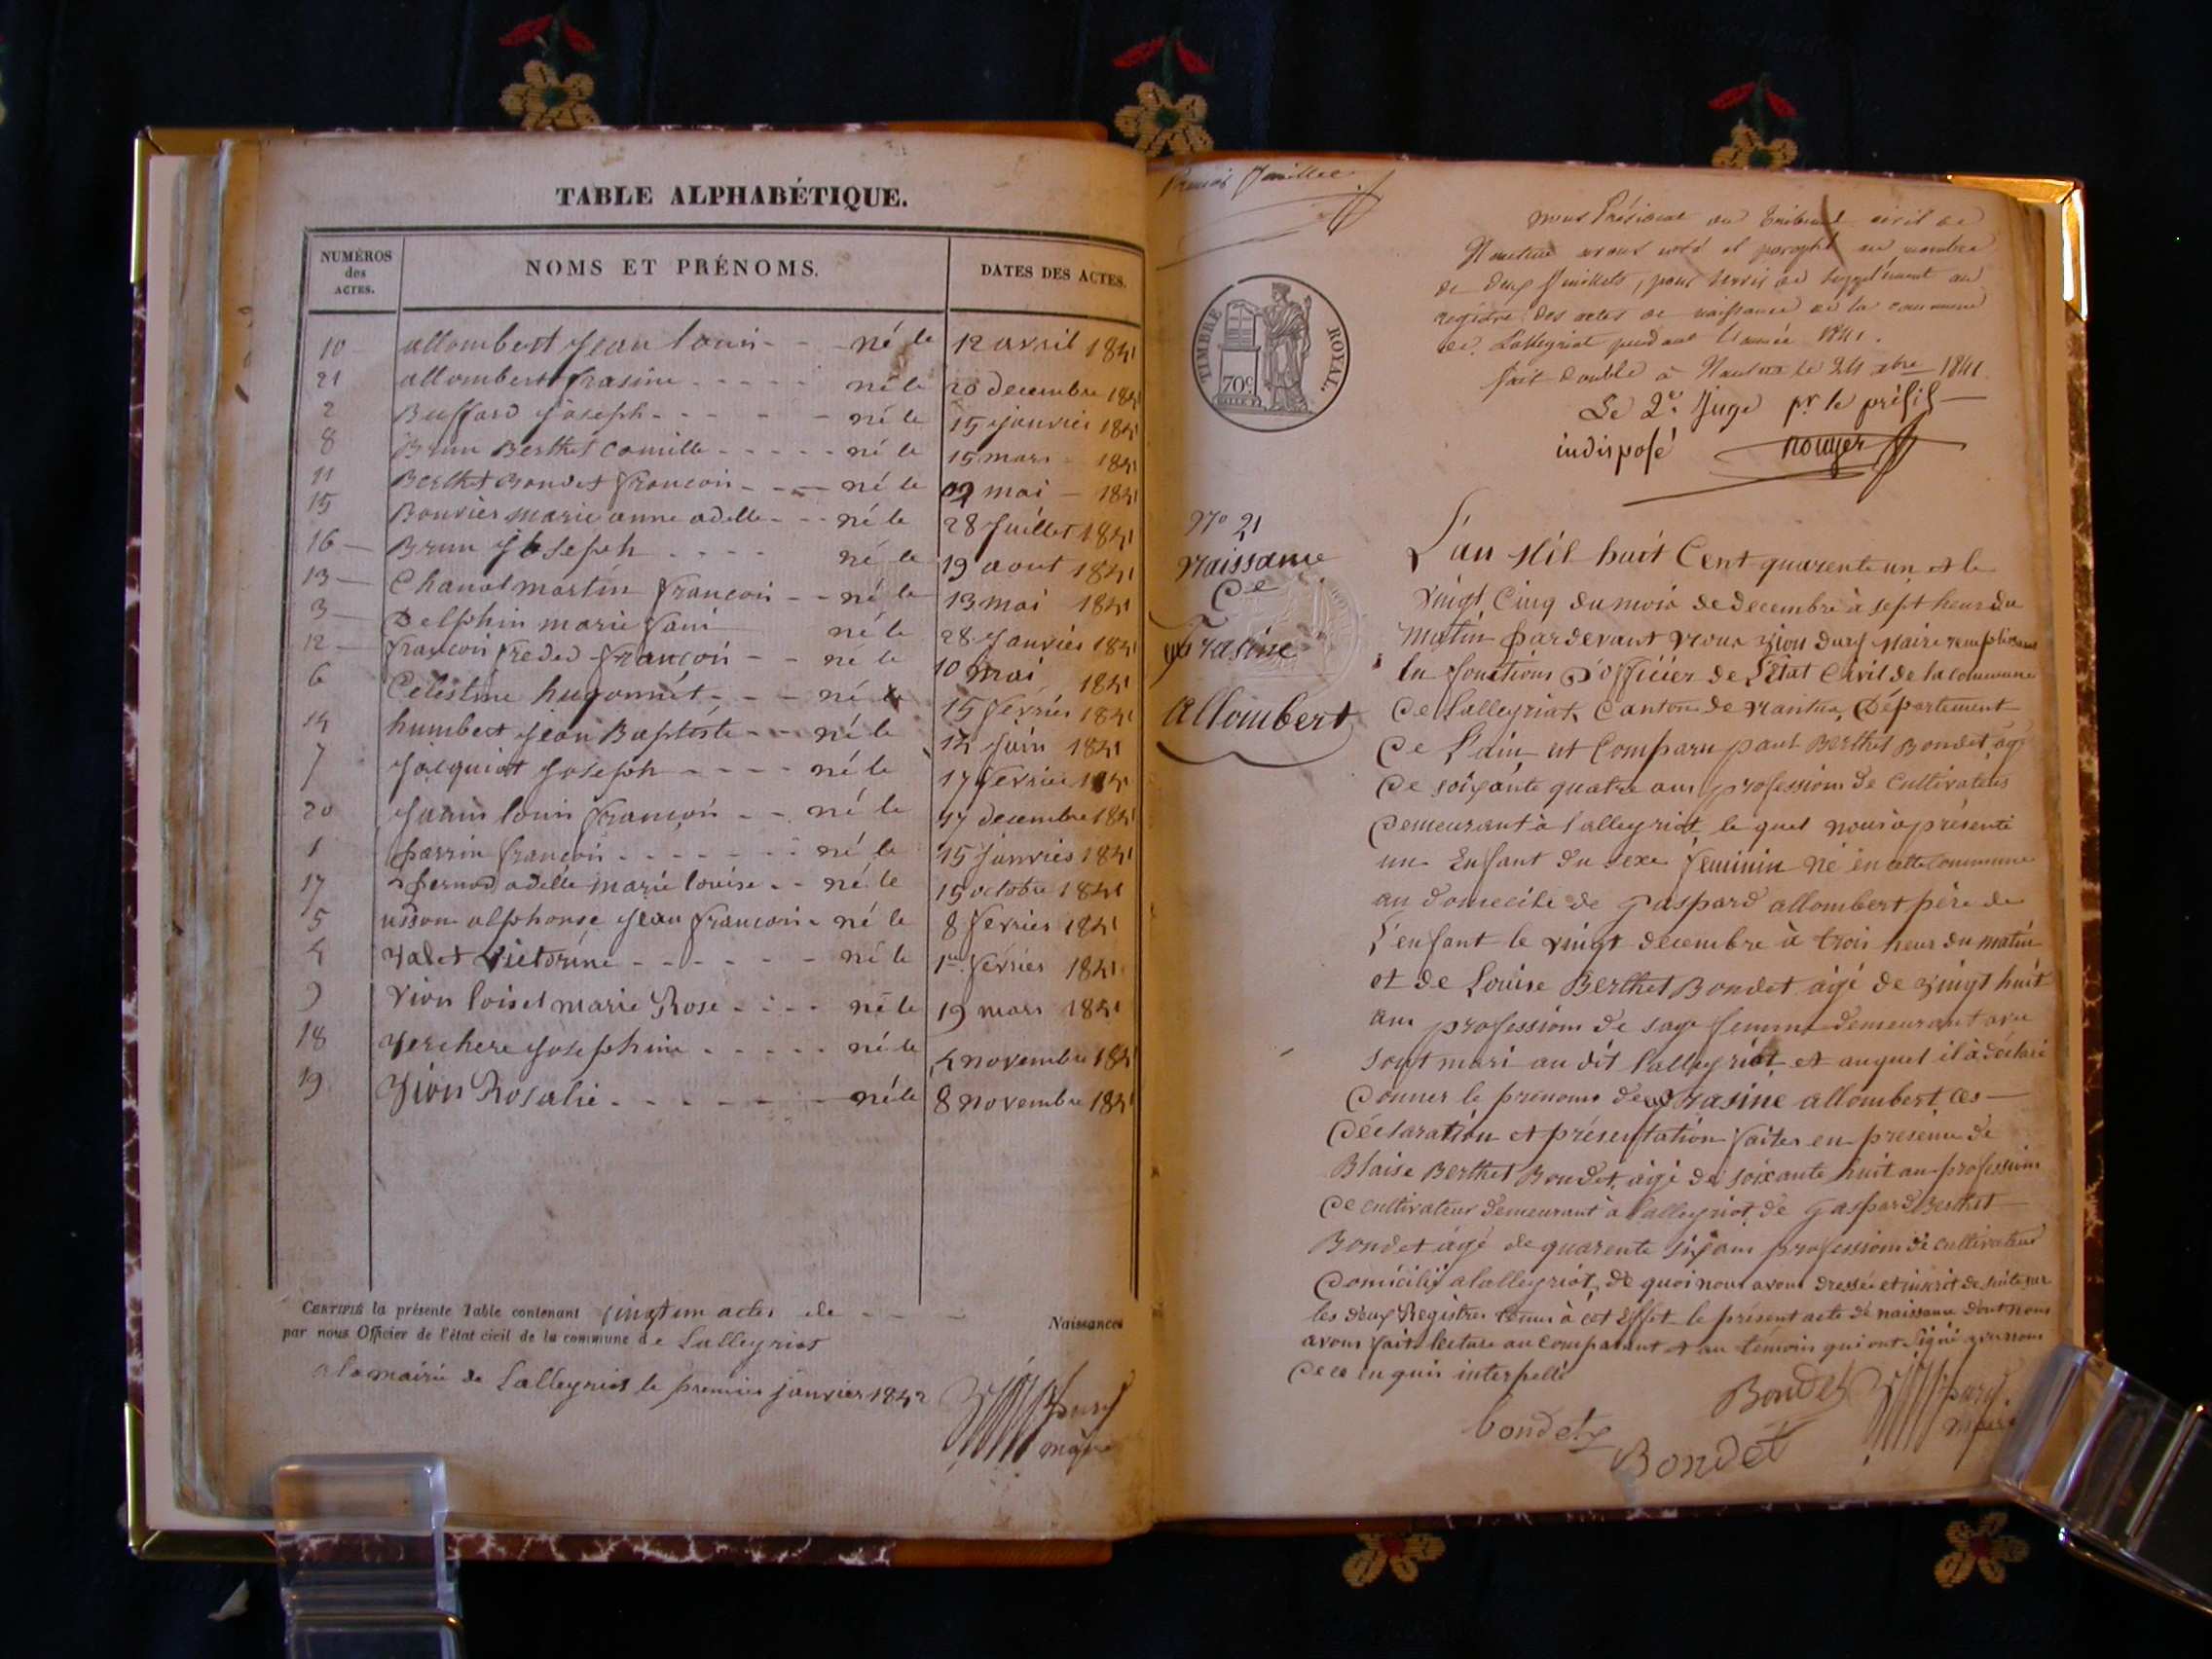 TABLE ALPHABÉTIQUE.
NUMÉROS
des
ACTES.
NOMS ET PRÉNOMS.
DATES DES ACTES.
10 allombert Jean louis né le 12 avril 1841
21 allombert frasine né le 20 decembre 1841
2 Buffard Joseph né le 15 Janvier 1841
8 Brun Berthet Camille né le 15 mars 1841
11 Berthet Bondet françois né le 09 mai 1841
15 Bouvier marie anne adelle né le 28 Juillet 1841
16 Brun Joseph né le 19 aout 1841
13 Chanal martin françois né le 13 mai 1841
3 Delphin marie né le 28 Janvier 1841
12 françois françois né le 10 mai 1841
6 Celestine hugonnet né le 15 fevrier 1841
14 humbert Jean Baptiste né le 14 Juin 1841
7 Jacquiot Joseph né le 17 fevrier 1841
20 louis françois né le 17 decembre 1841
1 perrin françois né le 15 Janvier 1841
17 pernod adelle marie louise né le 15 octobre 1841
5 usson alphonse Jean françois né le 8 fevrier 1841
4 valet victorine né le 1er fevrier 1841
9 vion loiset marie Rose né le 19 mars 1841
18 verchere Josephine né le 4 novembre 1841
19 Vion Rosalie né le 8 novembre 1841
CERTIFIÉ la présente Table contenant vingt un actes de Naissances
par nous Officier de l'état civil de la commune de Lalleyriat
a la mairie de Lalleyriat le premier janvier 1842
maire
feuillet
nous Président du Tribunal civil de
Nantua avons coté et paraphé au nombre
de deux feuillets, pour servir de supplément au
registre des actes de naissance de la commune
de Lalleyriat pendant l'année 1841.
fait double à Nantua le 24 xbre 1841
Le 2e Juge pr le présid
indisposé Rouyer
TIMBRE ROYAL.
70c.
No 21
Naissance
De
frasine
allombert
L'an Mil huit Cent quarente un et le
vingt Cinq du mois de decembre à sept heur du
Matin pardevant Nous vion dury Maire remplissant
les fonctions D'officier de L'état Civil de la commune
De Lalleyriat, Canton de Nantua, Département
De L'ain est Comparu paul Berthet Bondet agé
De soixante quatre ans profession de Cultivateur
Demeurant à Lalleyriat le quel nous à présenté
un Enfant du sexe feminin né en cette Commune
au domecile de gaspard allombert père de
L'enfant le vingt decembre à trois heur du matin
et de Louise Berthet Bondet agé de vingt huit
ans profession de sage femme demeurant avec
sont mari au dit Lalleyriat et auquel il à déclaré
Donner le prenoms de frasine allombert ces
Déclaration et présentation faites en presence de
Blaise Berthet Bondet, agé de soixante huit ans profession
De cultivateur demeurant à Lalleyriat, de gaspard Berthet
Bondet agé de quarente six ans profession de cultivateur
Domicilié a Lalleyriat, de quoi nous avons dressée et inscrit de suite sur
les deux Registres tenus à cet Effet le présent acte de naissance dont nous
avons fait lecture au Comparant et au témoins qui ont signé avec nous
De ce enquis interpellé
Bondet
bondet
Bondet
maire